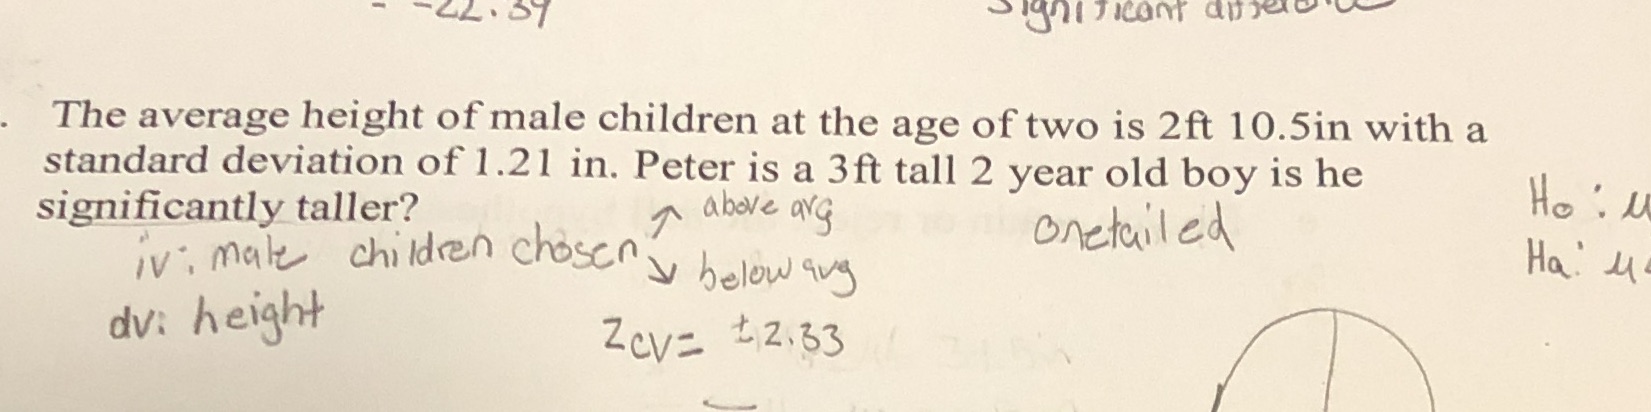 -22.39
Significant difference
. The average height of male children at the age of two is 2ft 10.5in with a
standard deviation of 1.21 in. Peter is a 3ft tall 2 year old boy is he
significantly taller?
iv: male children chosen ↗ above avg
↘ below avg
onetailed
Ho: μ
Ha: μ
dv: height
Zcv= ±2.33